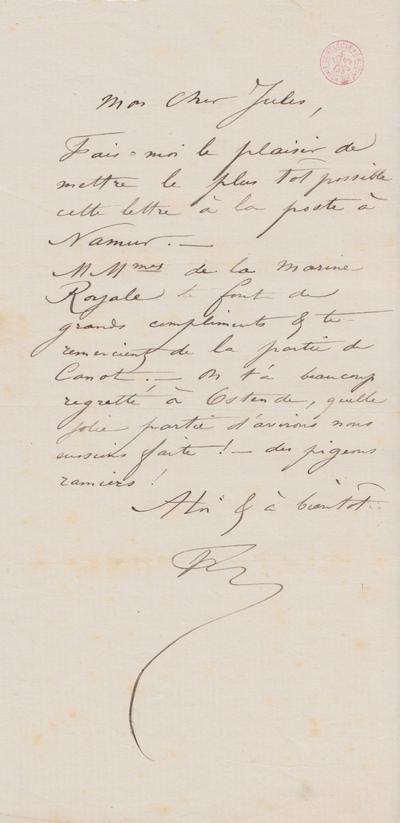 Mon Cher Jules,
Fais-moi le plaisir de
mettre le plus tôt possible
cette lettre à la poste à
Namur. —
MMmes de la Marine
Royale te font de
grands compliments & te
remercient de la partie de
Canot. — On t'a beaucoup
regretté à Ostende, quelle
jolie partie d'avirons nous
eussions faite ! — des pigeons
ramiers !
A toi & à bientôt.